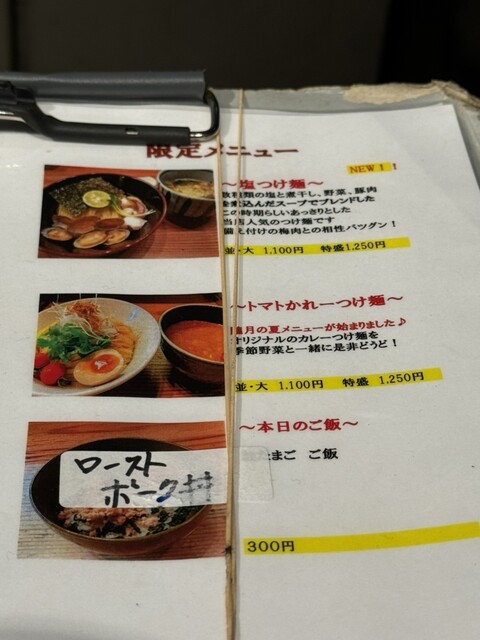 限定メニュー
NEW！！
～塩つけ麺～
数種類の塩と煮干し、野菜、豚肉
を煮込んだスープでブレンドした
この時期らしいあっさりとした
当店人気のつけ麺です
備え付けの梅肉との相性バツグン！
並・大 1,100円 特盛1,250円
～トマトかれーつけ麺～
月の夏メニューが始まりました♪
オリジナルのカレーつけ麺を
季節野菜と一緒に是非どうぞ！
並・大 1,100円 特盛 1,250円
～本日のご飯～
たまご ご飯
ロースト
ポーク丼
300円